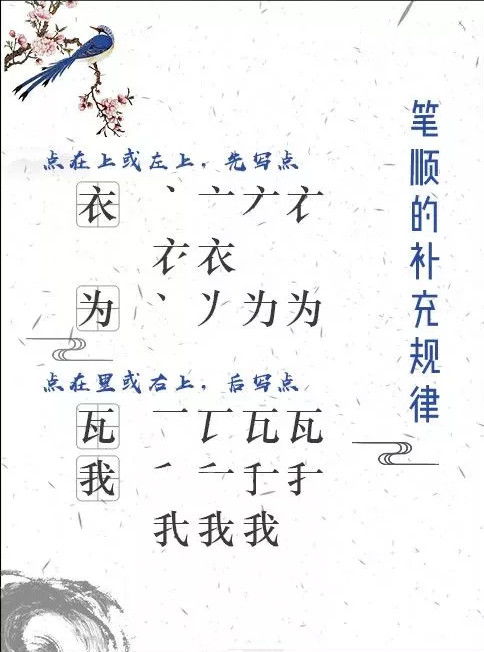 笔顺的补充规律
点在上或左上，先写点
衣 丶 亠 𠂉 𧘇
衤 衣
为 丶 丷 为 为
点在里或右上，后写点
瓦 一 𠃊 瓦 瓦
我 ㇒ 二 于 扌
我 我 我